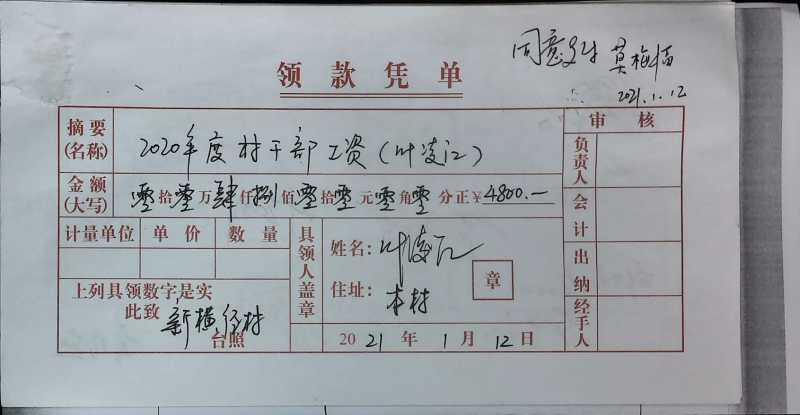 同意支付 莫梅福
2021.1.12
领款凭单
摘要(名称) 2020年度村干部工资(叶凌江)
审核
金额(大写) 零拾零万肆仟捌佰零拾零元零角零分正¥4800.—
负责人
会计
出纳
经手人
计量单位 单价 数量
具领人盖章
姓名: 叶凌江
住址: 本村
章
上列具领数字是实
此致 新横径村
台照
2021年1月12日